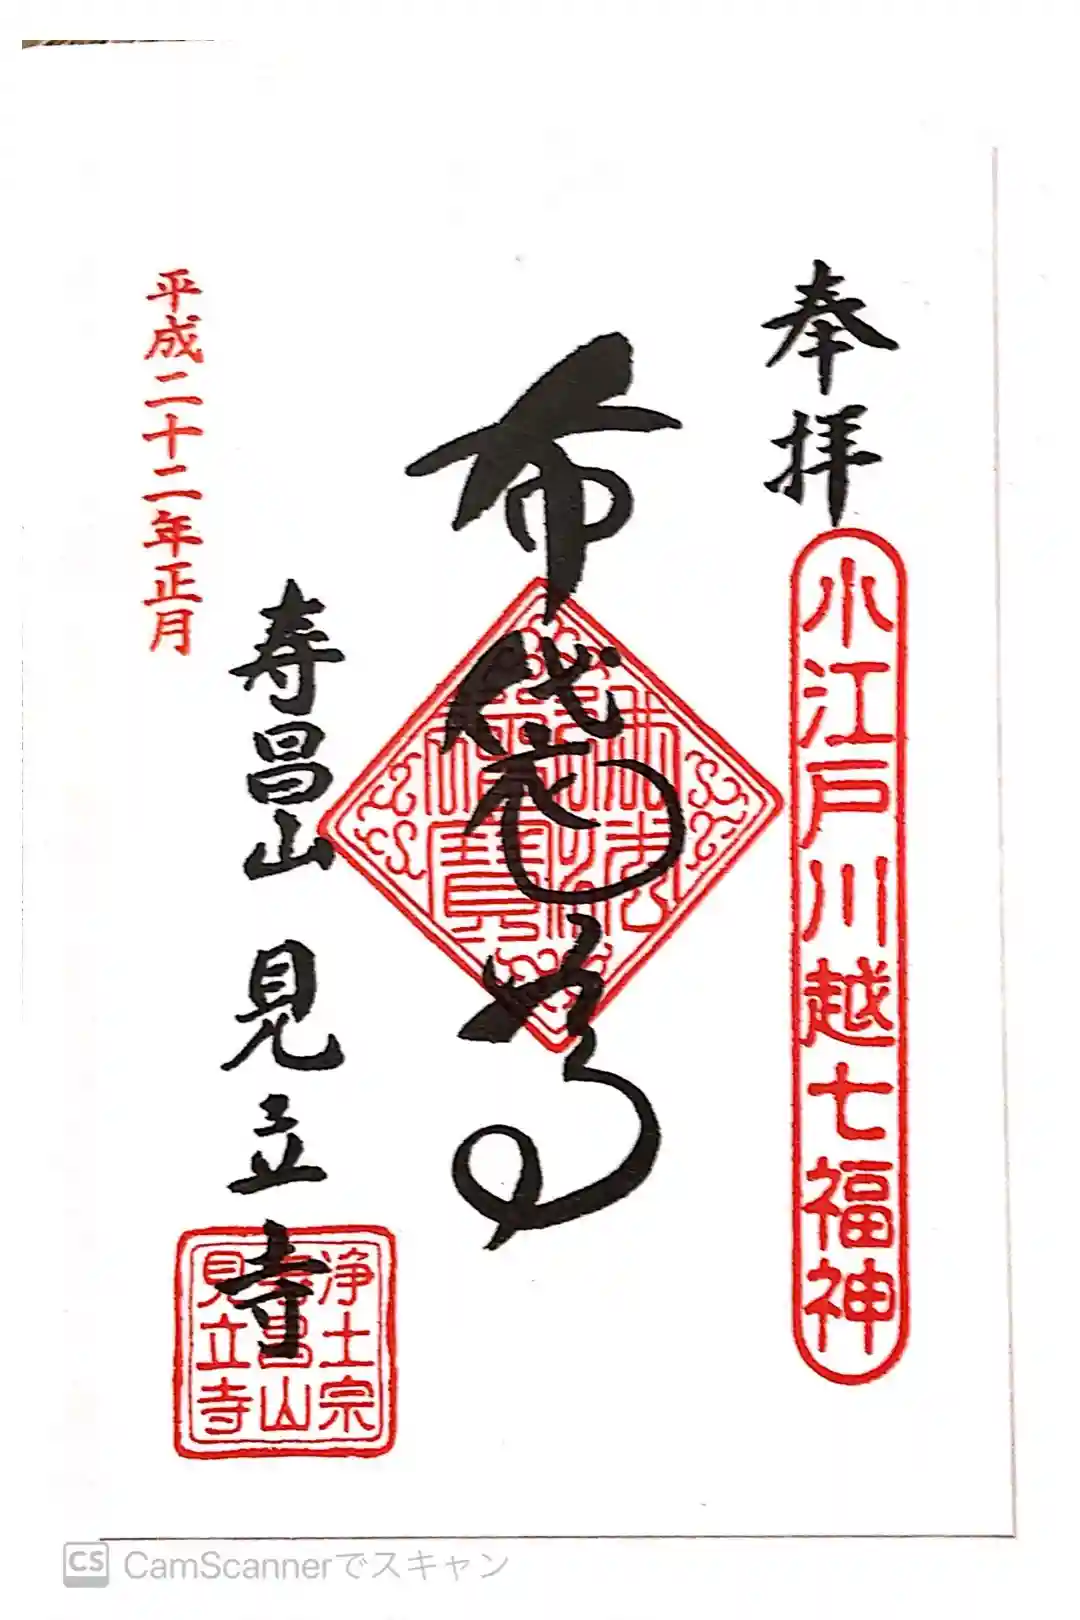 奉拝
小江戸川越七福神
布袋尊
佛法僧寶
寿昌山 見立寺
浄土宗
寿昌山
見立寺
平成二十二年正月
CS CamScannerでスキャン